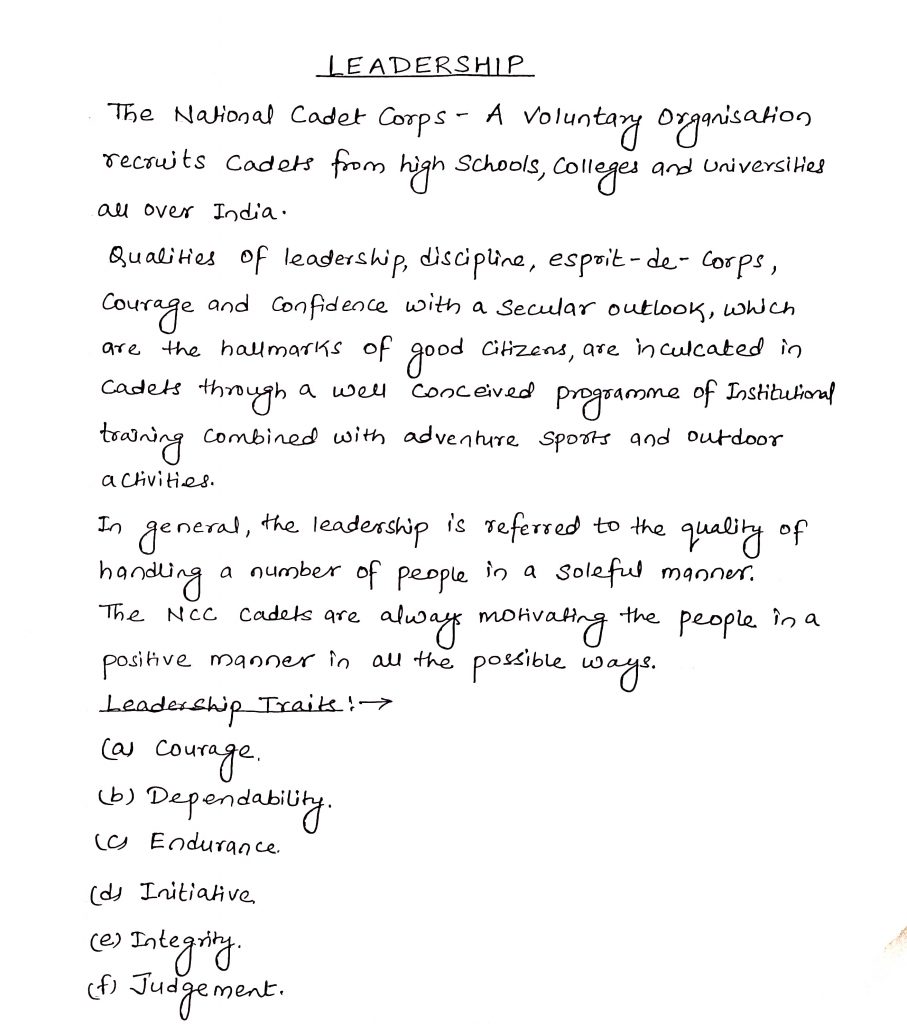 LEADERSHIP
The National Cadet Corps - A Voluntary Organisation
recruits Cadets from high Schools, Colleges and Universities
all over India.
Qualities of leadership, discipline, esprit-de-Corps,
Courage and Confidence with a Secular outlook, which
are the hallmarks of good Citizens, are inculcated in
Cadets through a well Conceived programme of Institutional
training Combined with adventure Sports and outdoor
activities.
In general, the leadership is referred to the quality of
handling a number of people in a Soleful manner.
The NCC Cadets are always motivating the people in a
positive manner in all the possible ways.
Leadership Traits:→
(a) Courage.
(b) Dependability.
(c) Endurance.
(d) Initiative
(e) Integrity.
(f) Judgement.